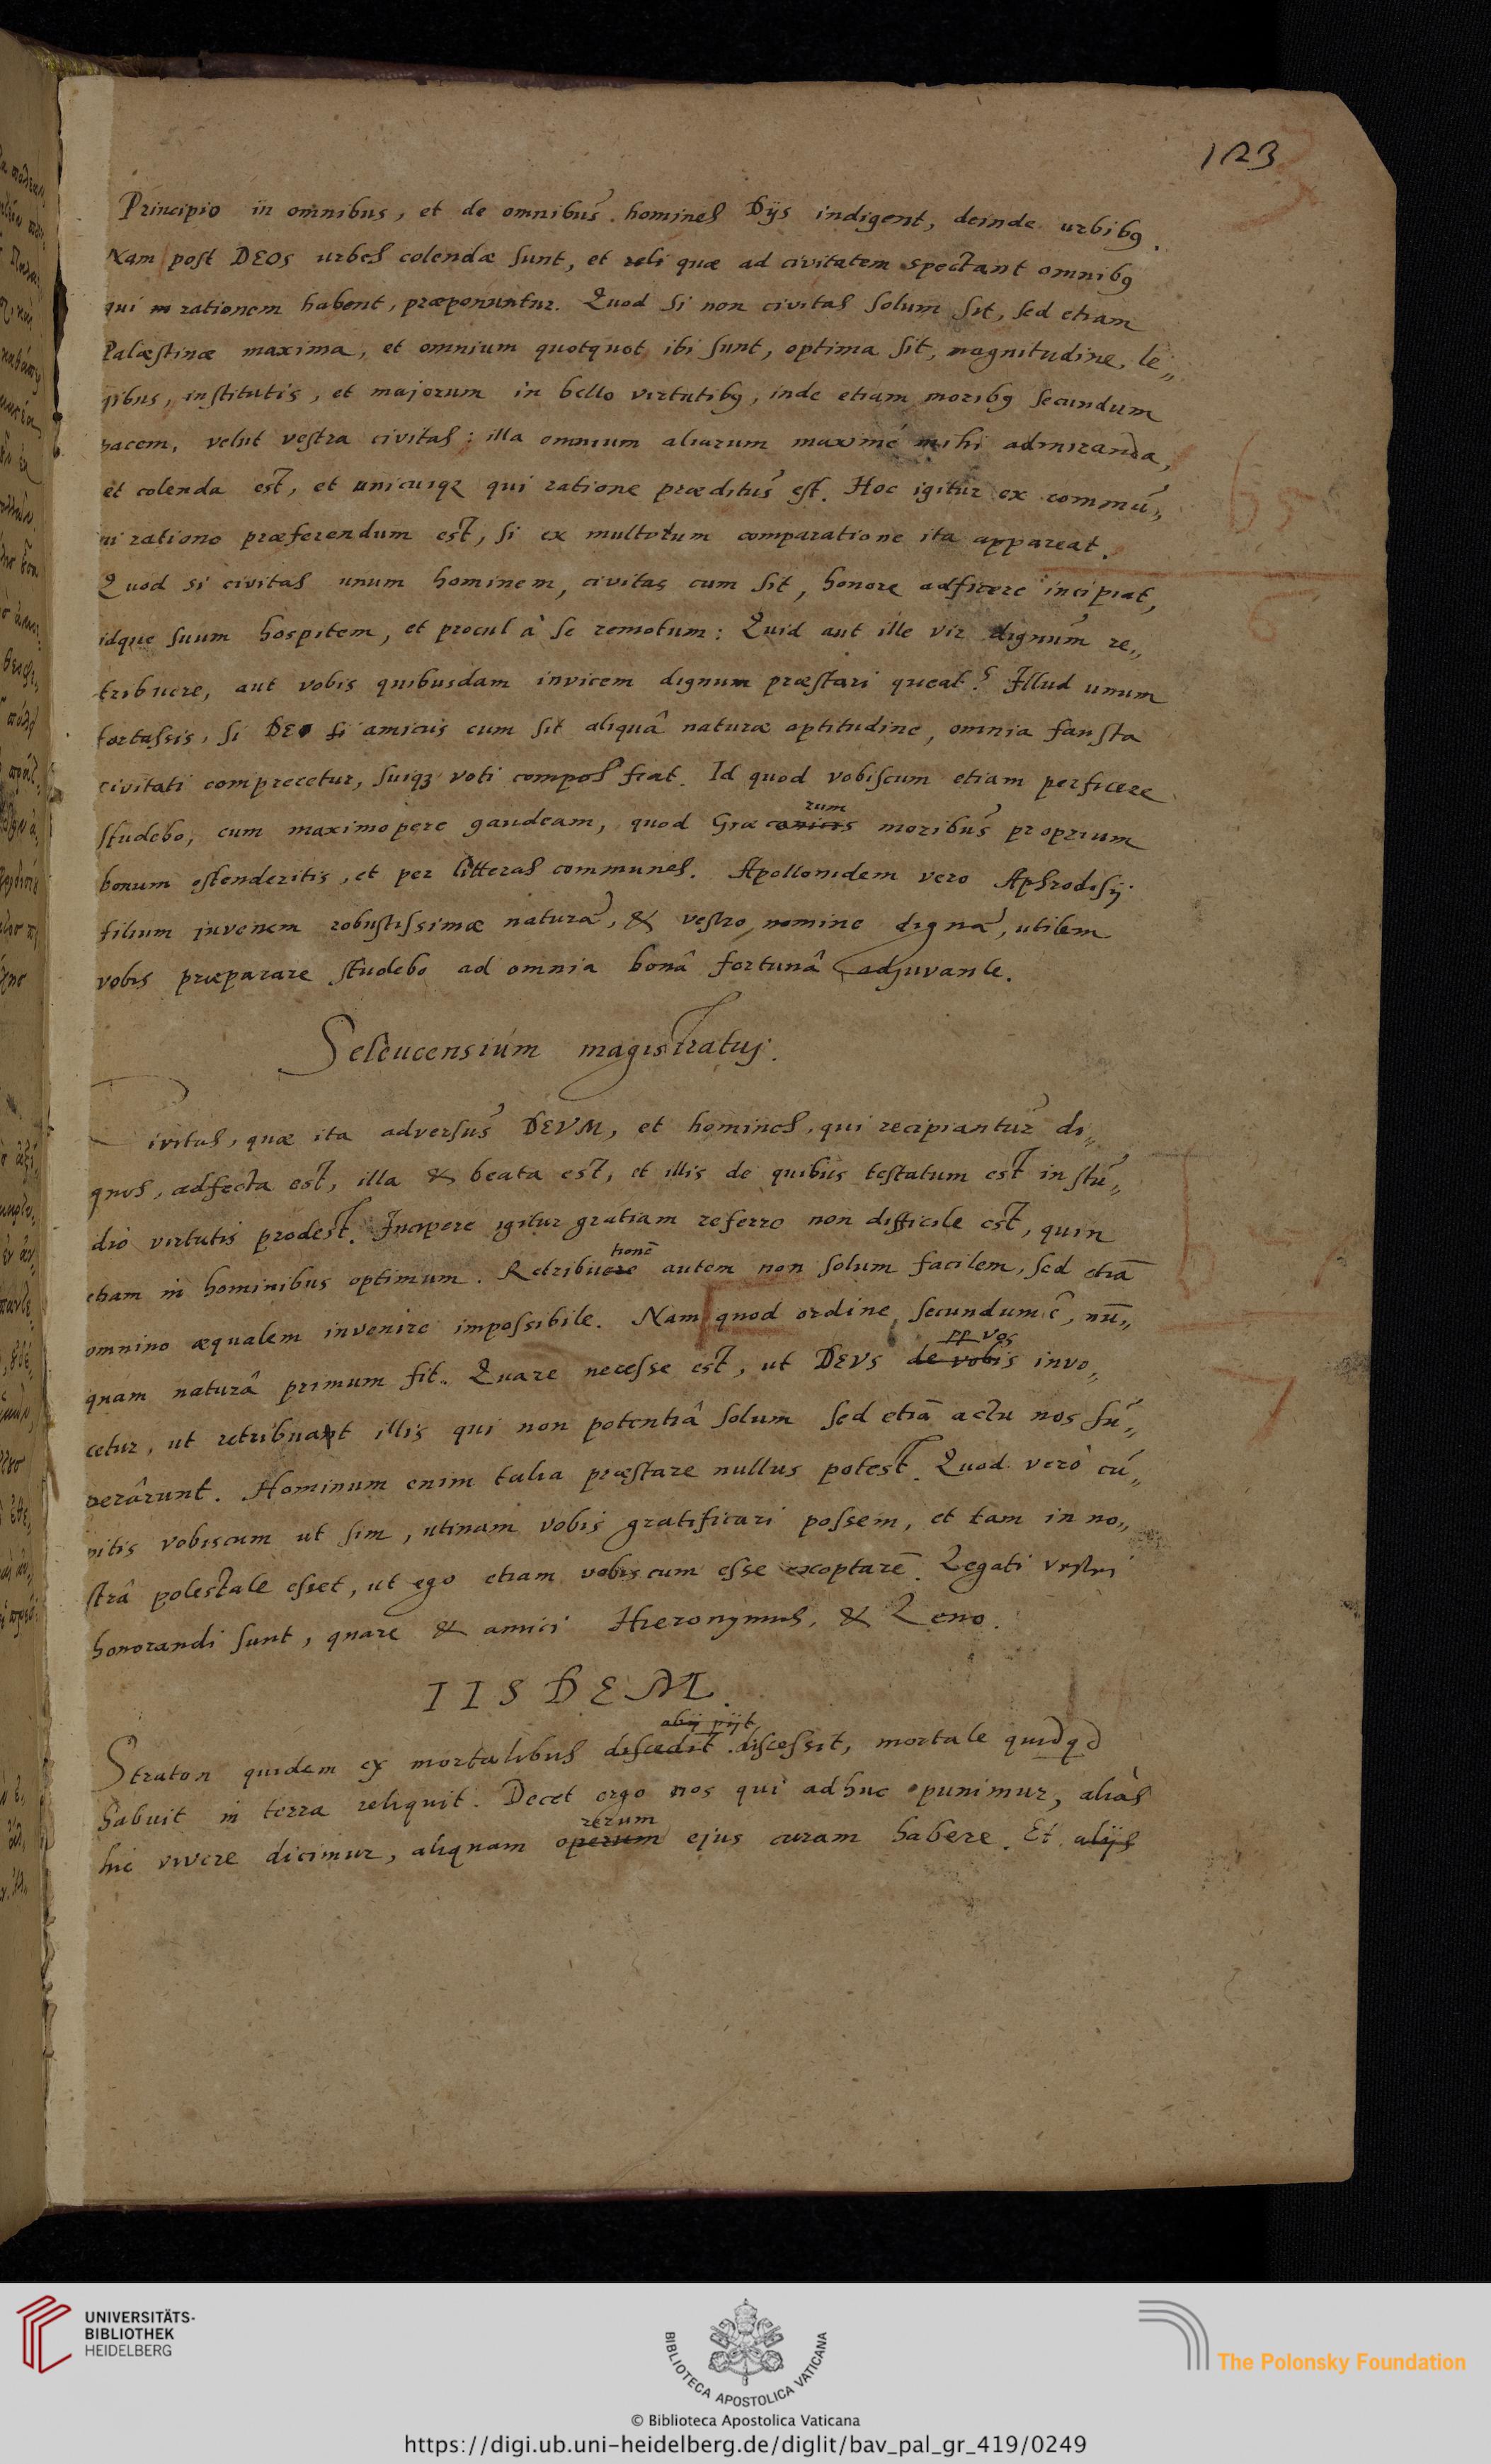 123
Principio in omnibus, et de omnibus homines Dijs indigent, deinde urbibq.
Nam post DEOS urbes colendæ sunt, et reli quæ ad civitatem spectant omnibq
qui rationem habent, præponuntur. Quod si non civitas solum sit, sed etiam
Palæstinæ maxima, et omnium quotquot ibi sunt, optima sit, magnitudine, le„
gibus, institutis, et majorum in bello virtutibq, inde etiam moribq secundum
pacem, velut vestra civitas: illa omnium aliarum maximé mihi admiranda,
et colenda est, et unicuiqz qui ratione præditus est. Hoc igitur ex commu„
ni ratione præferendum est, si ex multorum comparatione ita appareat.
Quod si civitas unum hominem, civitas cum sit, honore adficere incipiat,
idque suum hospitem, et procul à se remotum: Quid aut ille vir dignum re„
tribuere, aut vobis quibusdam invicem dignum præstari queat? Illud unum
fortassis, si DEO si amicus cum sit aliquâ naturæ aptitudine, omnia fausta
civitati comprecetur, suiqz voti compos fiat. Id quod vobiscum etiam perficere
rum
studebo, cum maximopere gaudeam, quod Græcanicis moribus proprium
bonum ostenderitis, et per litteras communes. Apollonidem vero Aphrodisij
filium juvenem robustissimæ naturæ, & vestro nomine dignũ, utilem
vobis præparare studebo ad omnia bonâ fortunâ adjuvante.
Seleucensium magistratuj.
Civitas, quæ ita adversus DEVM, et homines, qui recipiantur di„
gnos, adfecta est, illa & beata est, et illis de quibus testatum est in stu„
dio virtutis prodest. Incipere igitur gratiam referre non difficile est, quin
tionē
etiam in hominibus optimum. Retribuere autem non solum facilem, sed etiã
omnino æqualem invenire impossibile. Nam quod ordine secundum ē, nū„
pp vos
quam naturâ primum fit. Quare necesse est, ut DEVS de vobis invo„
cetur, ut retribuat illis qui non potentiâ solum sed etiã actu nos su„
perârunt. Hominum enim talia præstare nullus potest. Quod verò cu„
pitis vobiscum ut sim, utinam vobis gratificari possem, et tam in no„
strâ potestate esset, ut ego etiam vobiscum esse exoptarē. Legati vestri
honorandi sunt, quare & amici Hieronymus, & Zeno.
IISDEM.
Straton quidem ex mortalibus discedit discessit, mortale quidqd
habuit in terra reliquit. Decet ergo nos qui adhuc punimur, aliàs
rerum
hic vivere dicimur, aliquam operum ejus curam habere. Et alijs
UNIVERSITÄTS-
BIBLIOTHEK
HEIDELBERG
BIBLIOTECA APOSTOLICA VATICANA
The Polonsky Foundation
© Biblioteca Apostolica Vaticana
https://digi.ub.uni-heidelberg.de/diglit/bav_pal_gr_419/0249